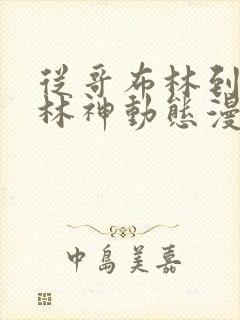 從哥布林到
林神動態漫
中島美嘉